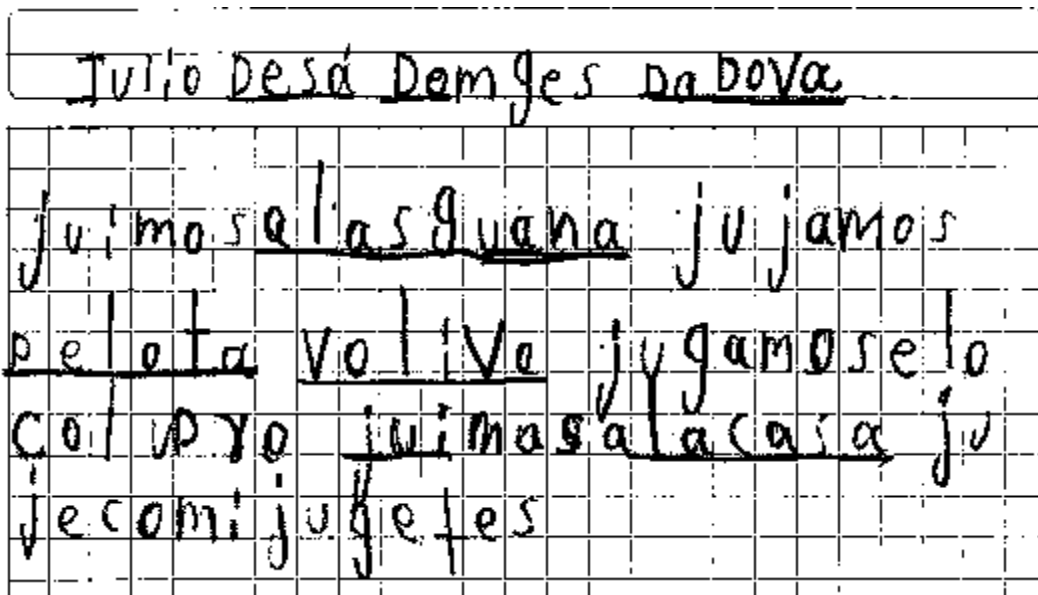 Julio Desá Domges Da bova
juimosalasguana jujamos
pelota voliva jugamoselo
col upro juimasalacasa ju
jecomi jugetes